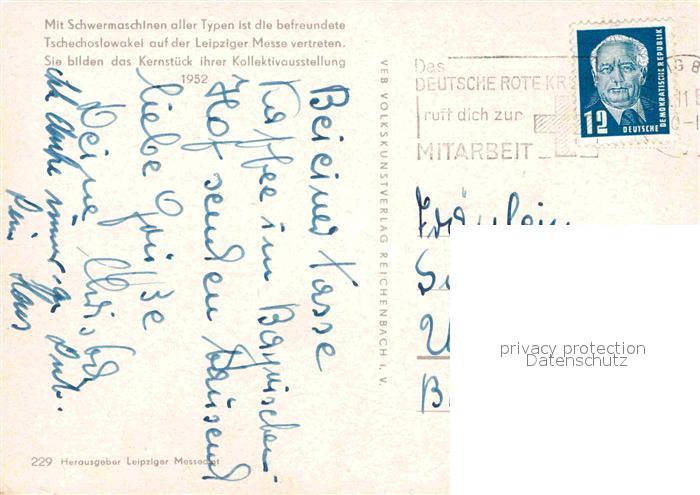 Mit Schwermaschinen aller Typen ist die befreundete
Tschechoslowakei auf der Leipziger Messe vertreten.
Sie bilden das Kernstück ihrer Kollektivausstellung
1952
Bei einer Tasse
Kaffee im Bayrischen
Hof senden tausend
liebe Grüße
Deine
Dein Hans
229 Herausgeber Leipziger Messeamt
VEB VOLKSKUNSTVERLAG REICHENBACH i. V.
Das
DEUTSCHE ROTE KR
ruft dich zur
MITARBEIT
12
DEUTSCHE
DEMOKRATISCHE REPUBLIK
Fräulein
privacy protection
Datenschutz